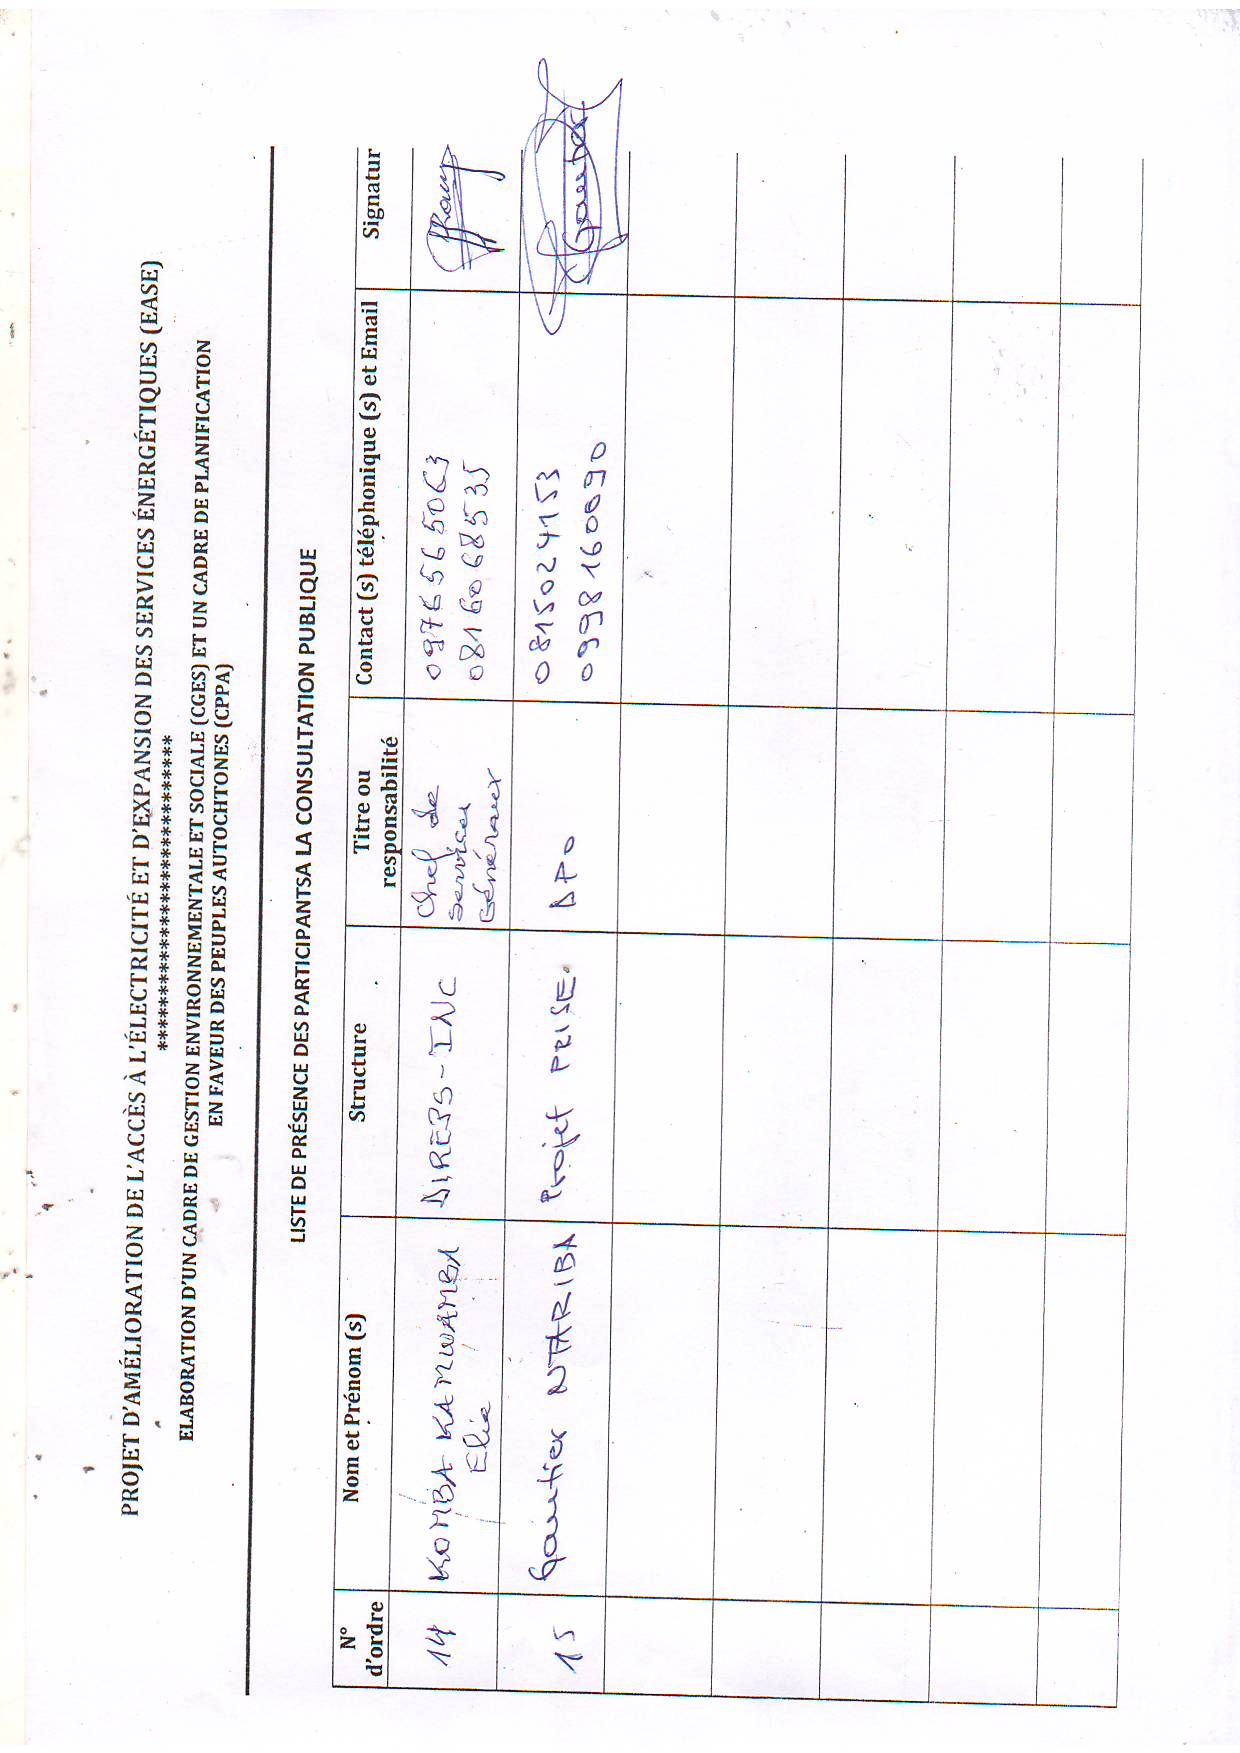 PROJET D'AMÉLIORATION DE L'ACCÈS À L'ÉLECTRICITÉ ET D'EXPANSION DES SERVICES ÉNERGÉTIQUES (EASE)
******************************
ELABORATION D'UN CADRE DE GESTION ENVIRONNEMENTALE ET SOCIALE (CGES) ET UN CADRE DE PLANIFICATION
EN FAVEUR DES PEUPLES AUTOCHTONES (CPPA)
LISTE DE PRÉSENCE DES PARTICIPANTSA LA CONSULTATION PUBLIQUE
N° d'ordre Nom et Prénom (s) Structure Titre ou responsabilité Contact (s) téléphonique (s) et Email Signatur
14 KOMBA KAMWAMBA Elie DIREPS-INC Chef de services Généraux 0976565063 0816068535
15 Gautier NTARIBA Projet PRISE. DPO 0815024153 0998160090